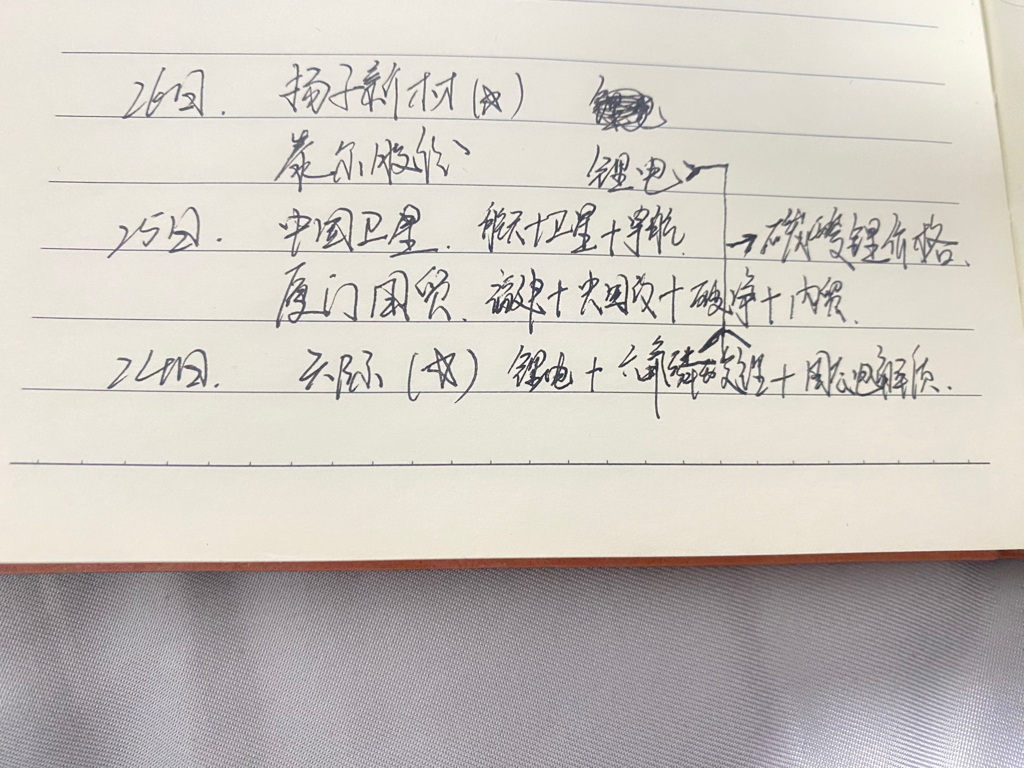 26日. 扬子新材(☆)
泰尔股份 锂电
25日. 中国卫星. 航天+卫星+导航
→碳酸锂价格.
厦门国贸. 福建+央国改+破净+内贸.
24日. 天际(☆) 锂电+六氟磷酸锂+固态电解质.